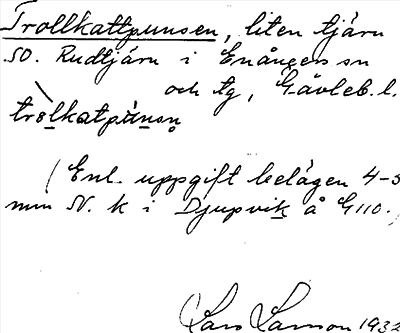 Trollkattpussen, liten tjärn
SO. Rudtjärn i Enångers sn
och tg, Gävleb. l.
(Enl. uppgift belägen 4-5
mm N. k i Djupvik å G110.
(Lars Larsson 1932